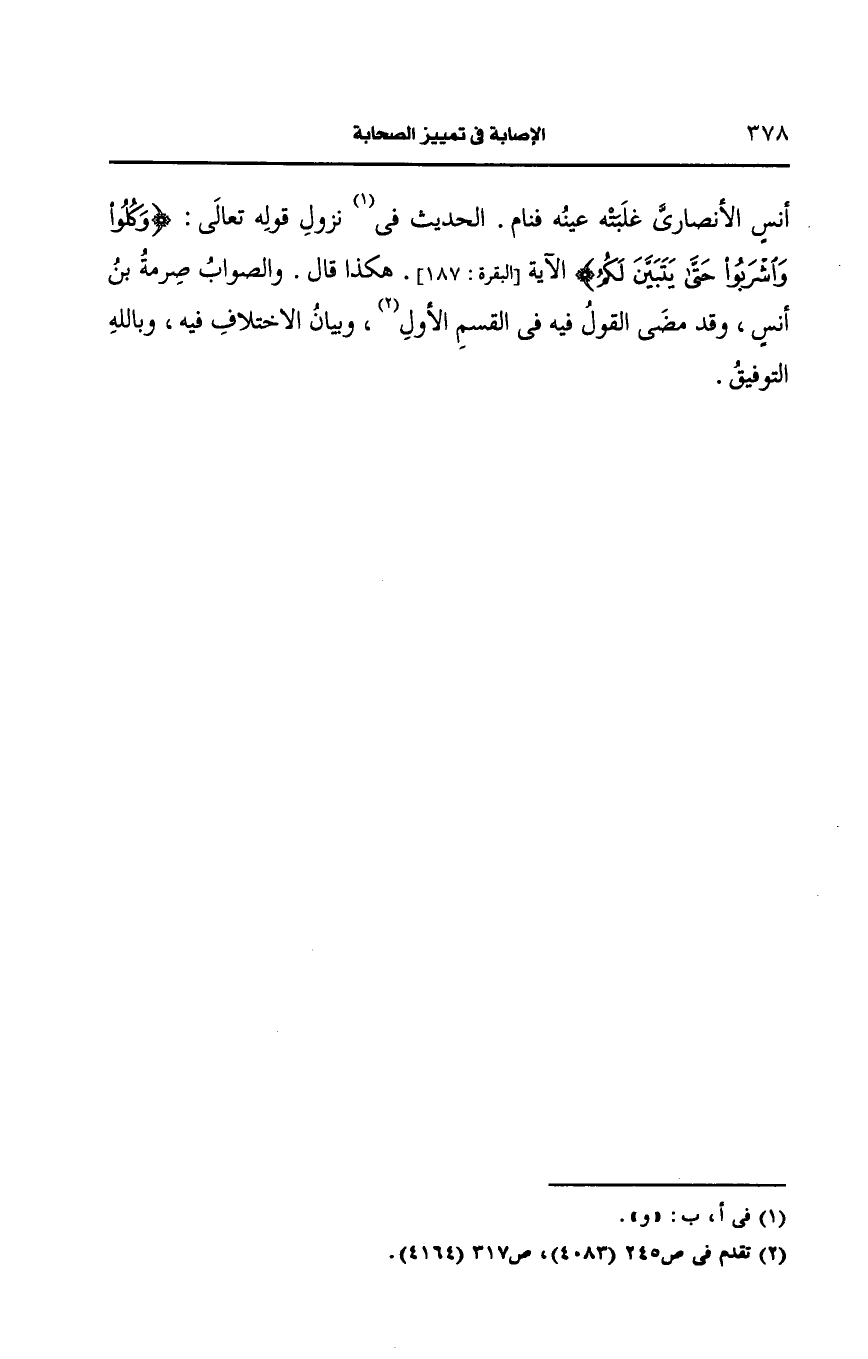 ٣٧٨ الإصابة فى تمييز الصحابة
أنسٍ الأنصارىَّ غلَبَتْه عينُه فنام . الحديث فى(١) نزولِ قولِه تعالَى : ﴿وَكُلُوا۟
وَٱشْرَبُوا۟ حَتَّىٰ يَتَبَيَّنَ لَكُمُ﴾ الآية [البقرة : ١٨٧] . هكذا قال . والصوابُ صِرمةُ بنُ
أنسٍ ، وقد مضَى القولُ فيه فى القسمِ الأولِ(٢) ، وبيانُ الاختلافِ فيه ، وباللهِ
التوفيقُ .
(١) فى أ، ب : «و» .
(٢) تقدم فى ص٢٤٥ (٤٠٨٣)، ص٣١٧ (٤١٦٤) .